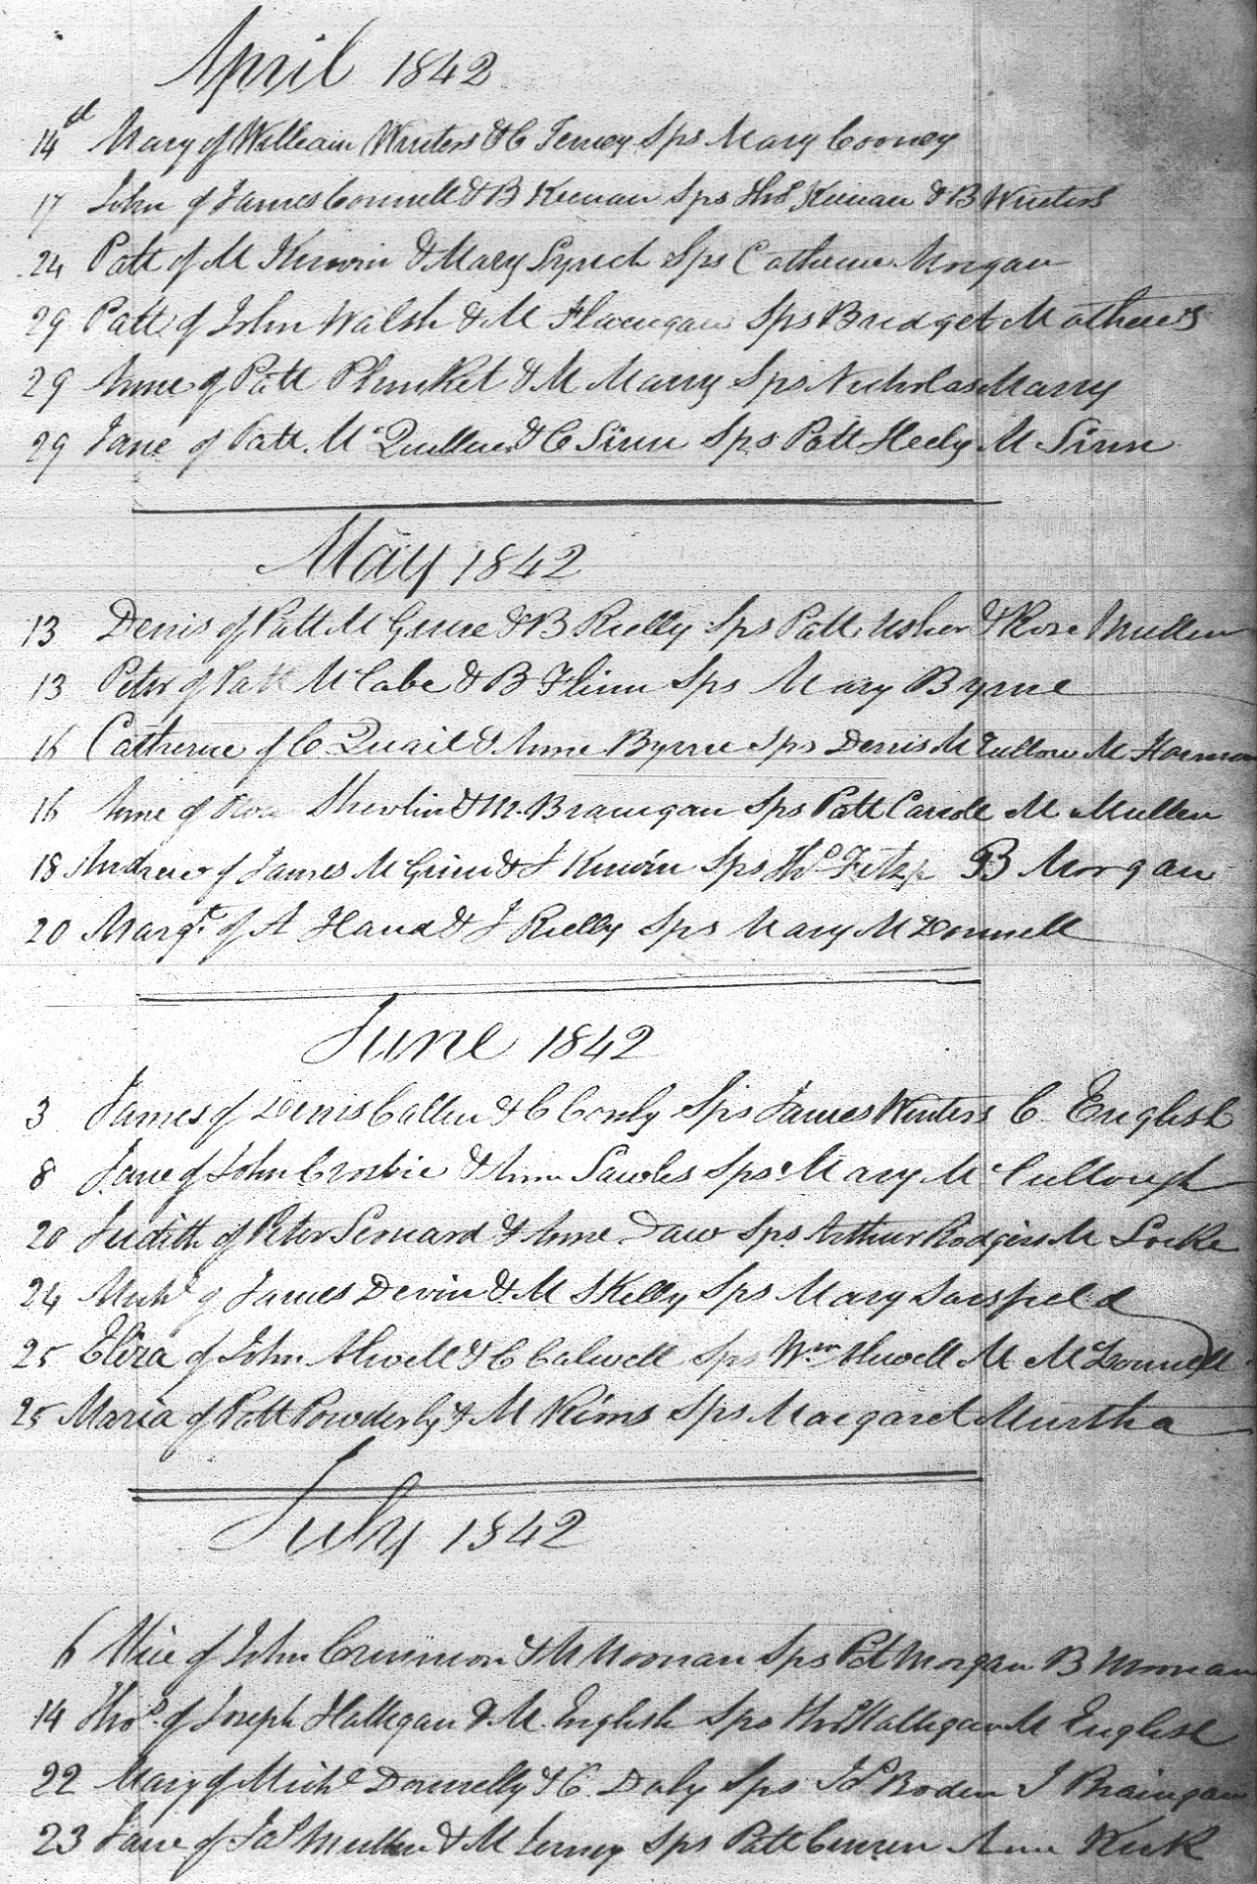 April 1842
14th Mary of William Winters & C Ferney Sps Mary Cooney
17 John of James Connell & B Keenan Sps Thos Keenan & B Winters
24 Patt of M Kirwin & Mary Lynch Sps Catherine Morgan
29 Patt of John Walsh & M Flanigan Sps Bridget Mathews
29 Anne of Patt Plunket & M Marry Sps Nicholas Marry
29 Jane of Patt McQuillen & C Sinn Sps Patt Heely M Sinn
May 1842
13 Denis of Patt M Guire & B Rielly Sps Patt Usher & Rose Mullen
13 Peter of Patt McCabe & B Flinn Sps Mary Byrne
16 Catherine of C Quail & Anne Byrne Sps Denis M Cullow M
16 Anne of Shevlin & M Branigan Sps Patt Carroll M Mullen
18 Andrew of James M & J Kirwin Sps Thos Fitzp B Morgan
20 Margt of A Hand & J Rielly Sps Mary M Donnell
June 1842
3 James of Denis Callen & C Conly Sps James Winters C. English
8 Jane of John Crosbie & Ann Sawles Sps Mary McCullough
20 Judith of Peter Leonard & Anne Daw Sps Arthur Rodgers M Locke
24 Michl of James Devin & M Skelly Sps Mary Sarsfield
25 Eliza of John & C Calwell Sps Wm M McDonnell
25 Maria of Patt Powderly & M Kims Sps Margaret Murtha
July 1842
6 Alice of John Crinnion & M Noonan Sps Pat Morgan B Noonan
14 Thos of Joseph Halligan & M. English Sps Thos Halligan M English
22 Mary of Michl Donnelly & C. Daly Sps Jas Boden J Branigan
23 Jane of Jas Mullen & M Ferney Sps Patt Curren Ann Kirk